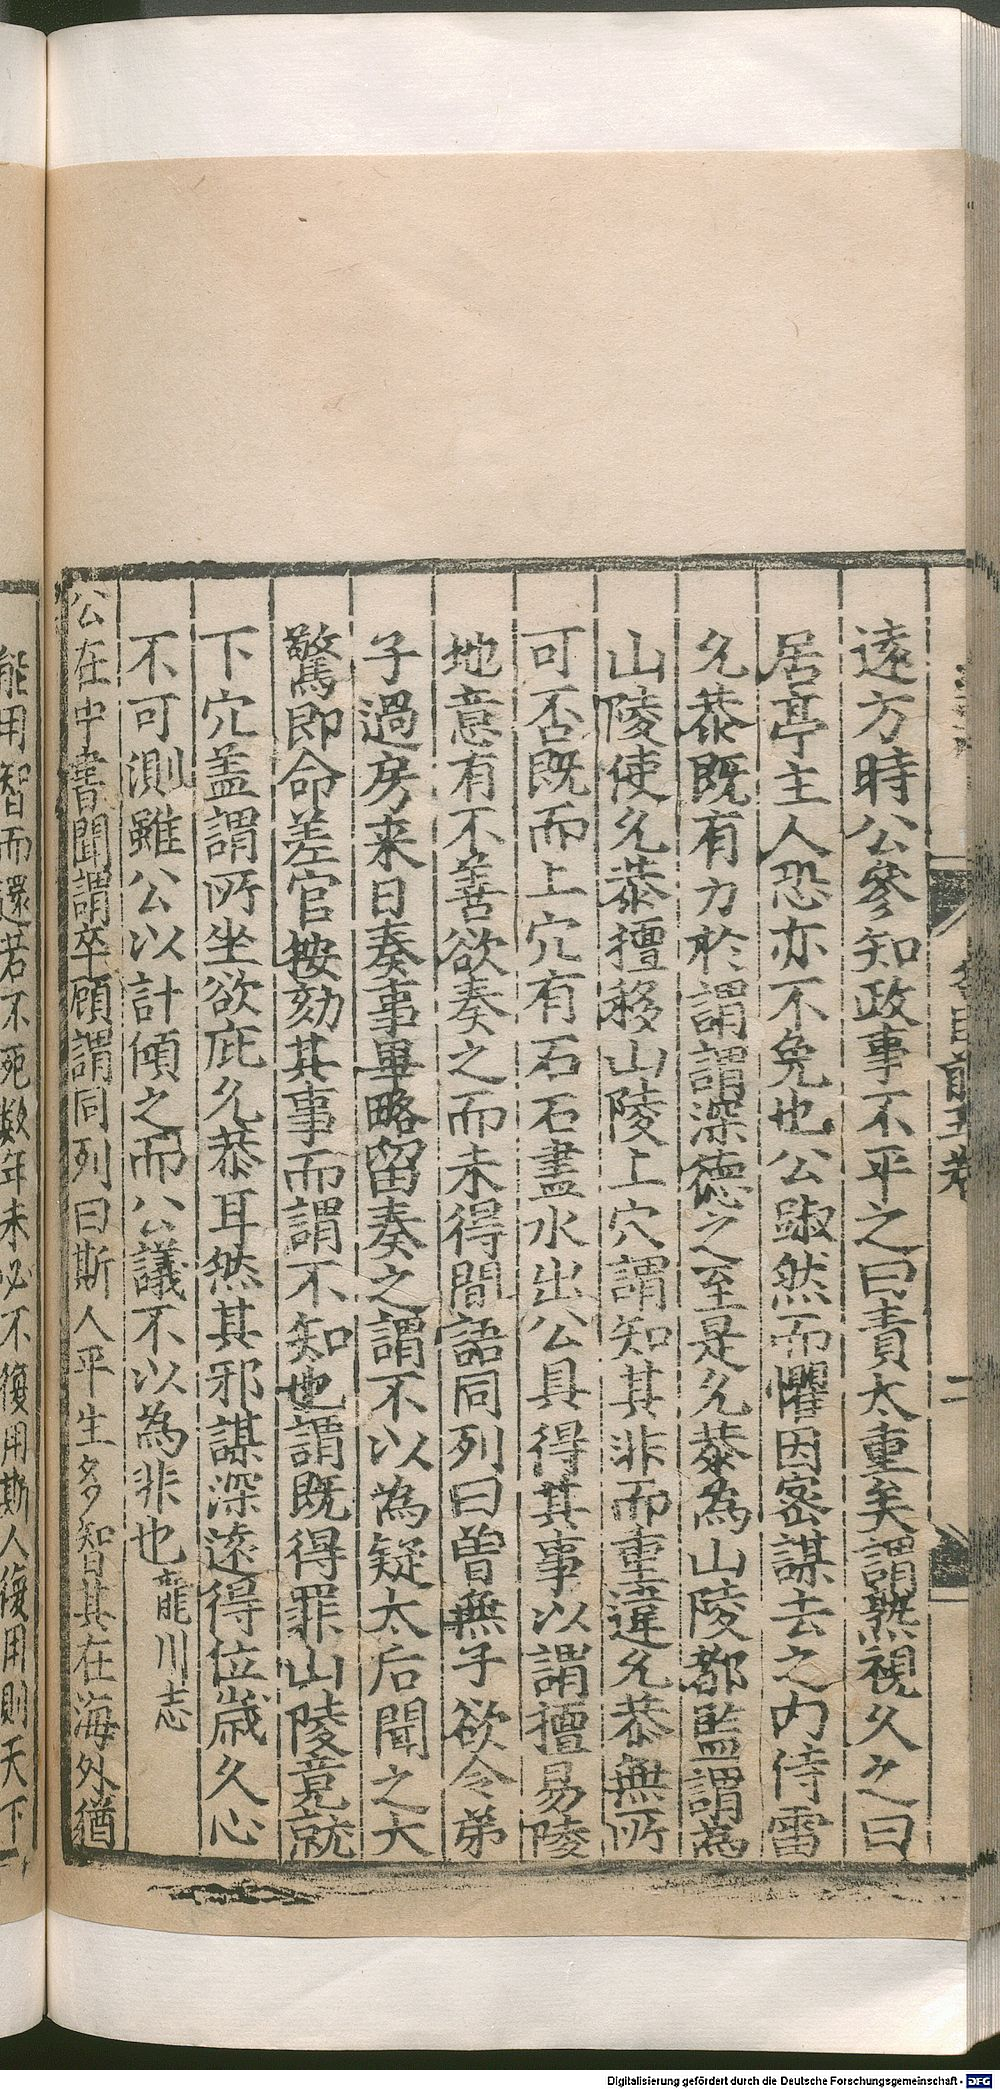 遠方時公參知政事不平之曰責太重矣謂熟視久之曰
居亭主人恐亦不免也公踧然而懼因密謀去之内侍雷
允恭既有力於謂謂深德之至是允恭為山陵都監謂為
山陵使允恭擅移山陵上穴謂知其非而重違允恭無所
可否既而上穴有石石盡水出公具得其事以謂擅易陵
地意有不善欲奏之而未得間語同列曰曽無子欲令弟
子過房来日奏事畢略留奏之謂不以為疑太后聞之大
驚即命差官按劾其事而謂不知也謂既得罪山陵竟就
下穴盖謂所坐欲庇允恭耳然其邪謀深遠得位歲久心
不可測雖公以計傾之而公議不以為非也龍川志
公在中書聞謂卒顧謂同列曰斯人平生多智其在海外猶
能用智而還若不死数年未必不復用斯人復用則天下
名臣前五卷
二
Digitalisierung gefördert durch die Deutsche Forschungsgemeinschaft - DFG